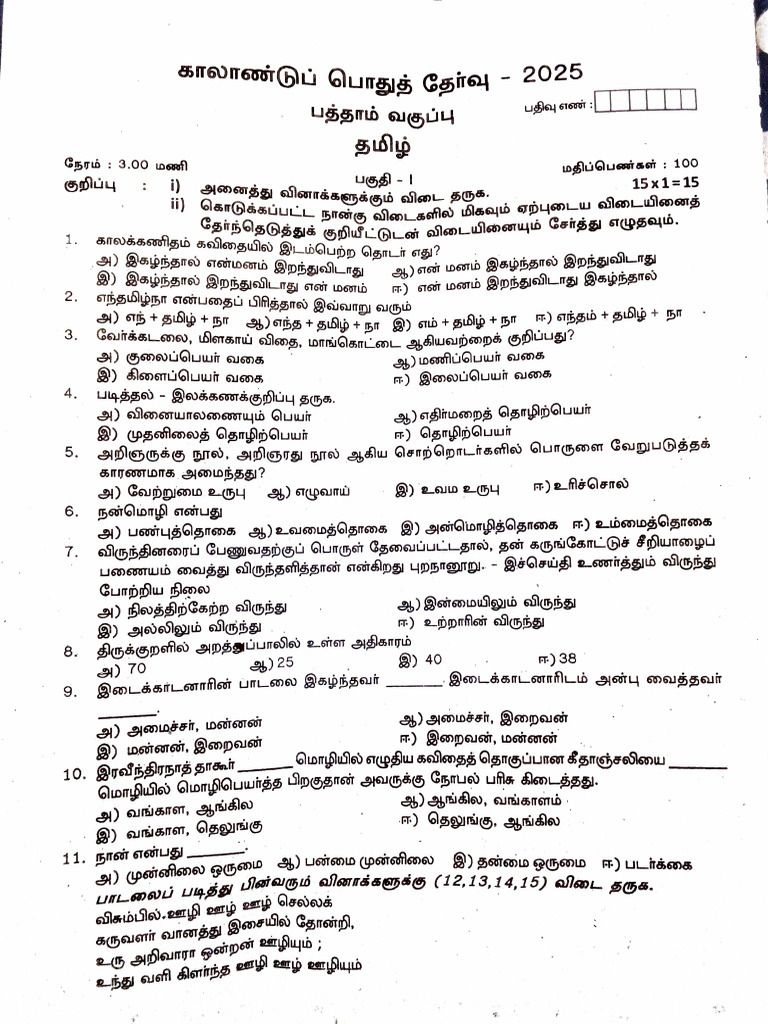 காலாண்டுப் பொதுத் தேர்வு - 2025
பத்தாம் வகுப்பு
பதிவு எண் :
தமிழ்
நேரம் : 3.00 மணி
மதிப்பெண்கள் : 100
பகுதி - I
15 x 1 = 15
குறிப்பு : i) அனைத்து வினாக்களுக்கும் விடை தருக.
ii) கொடுக்கப்பட்ட நான்கு விடைகளில் மிகவும் ஏற்புடைய விடையினைத்
தேர்ந்தெடுத்துக் குறியீட்டுடன் விடையினையும் சேர்த்து எழுதவும்.
1. காலக்கணிதம் கவிதையில் இடம்பெற்ற தொடர் எது?
அ) இகழ்ந்தால் என்மனம் இறந்துவிடாது ஆ) என் மனம் இகழ்ந்தால் இறந்துவிடாது
இ) இகழ்ந்தால் இறந்துவிடாது என் மனம் ஈ) என் மனம் இறந்துவிடாது இகழ்ந்தால்
2. எந்தமிழ்நா என்பதைப் பிரித்தால் இவ்வாறு வரும்
அ) எந் + தமிழ் + நா ஆ) எந்த + தமிழ் + நா இ) எம் + தமிழ் + நா ஈ) எந்தம் + தமிழ் + நா
3. வேர்க்கடலை, மிளகாய் விதை, மாங்கொட்டை ஆகியவற்றைக் குறிப்பது?
அ) குலைப்பெயர் வகை ஆ) மணிப்பெயர் வகை
இ) கிளைப்பெயர் வகை ஈ) இலைப்பெயர் வகை
4. படித்தல் - இலக்கணக்குறிப்பு தருக.
அ) வினையாலணையும் பெயர் ஆ) எதிர்மறைத் தொழிற்பெயர்
இ) முதனிலைத் தொழிற்பெயர் ஈ) தொழிற்பெயர்
5. அறிஞருக்கு நூல், அறிஞரது நூல் ஆகிய சொற்றொடர்களில் பொருளை வேறுபடுத்தக்
காரணமாக அமைந்தது?
அ) வேற்றுமை உருபு ஆ) எழுவாய் இ) உவம உருபு ஈ) உரிச்சொல்
6. நன்மொழி என்பது
அ) பண்புத்தொகை ஆ) உவமைத்தொகை இ) அன்மொழித்தொகை ஈ) உம்மைத்தொகை
7. விருந்தினரைப் பேணுவதற்குப் பொருள் தேவைப்பட்டதால், தன் கருங்கோட்டுச் சீறியாழைப்
பணையம் வைத்து விருந்தளித்தான் என்கிறது புறநானூறு. - இச்செய்தி உணர்த்தும் விருந்து
போற்றிய நிலை
அ) நிலத்திற்கேற்ற விருந்து ஆ) இன்மையிலும் விருந்து
இ) அல்லிலும் விருந்து ஈ) உற்றாரின் விருந்து
8. திருக்குறளில் அறத்துப்பாலில் உள்ள அதிகாரம்
அ) 70 ஆ) 25 இ) 40 ஈ) 38
9. இடைக்காடனாரின் பாடலை இகழ்ந்தவர் ________ இடைக்காடனாரிடம் அன்பு வைத்தவர்
________.
அ) அமைச்சர், மன்னன் ஆ) அமைச்சர், இறைவன்
இ) மன்னன், இறைவன் ஈ) இறைவன், மன்னன்
10. இரவீந்திரநாத் தாகூர் ________ மொழியில் எழுதிய கவிதைத் தொகுப்பான கீதாஞ்சலியை ________
மொழியில் மொழிபெயர்த்த பிறகுதான் அவருக்கு நோபல் பரிசு கிடைத்தது.
அ) வங்காள, ஆங்கில ஆ) ஆங்கில, வங்காளம்
இ) வங்காள, தெலுங்கு ஈ) தெலுங்கு, ஆங்கில
11. நான் என்பது ________.
அ) முன்னிலை ஒருமை ஆ) பன்மை முன்னிலை இ) தன்மை ஒருமை ஈ) படர்க்கை
பாடலைப் படித்து பின்வரும் வினாக்களுக்கு (12,13,14,15) விடை தருக.
விசும்பில் ஊழி ஊழ் ஊழ் செல்லக்
கருவளர் வானத்து இசையில் தோன்றி,
உரு அறிவாரா ஒன்றன் ஊழியும் ;
உந்து வளி கிளர்ந்த ஊழி ஊழ் ஊழியும்